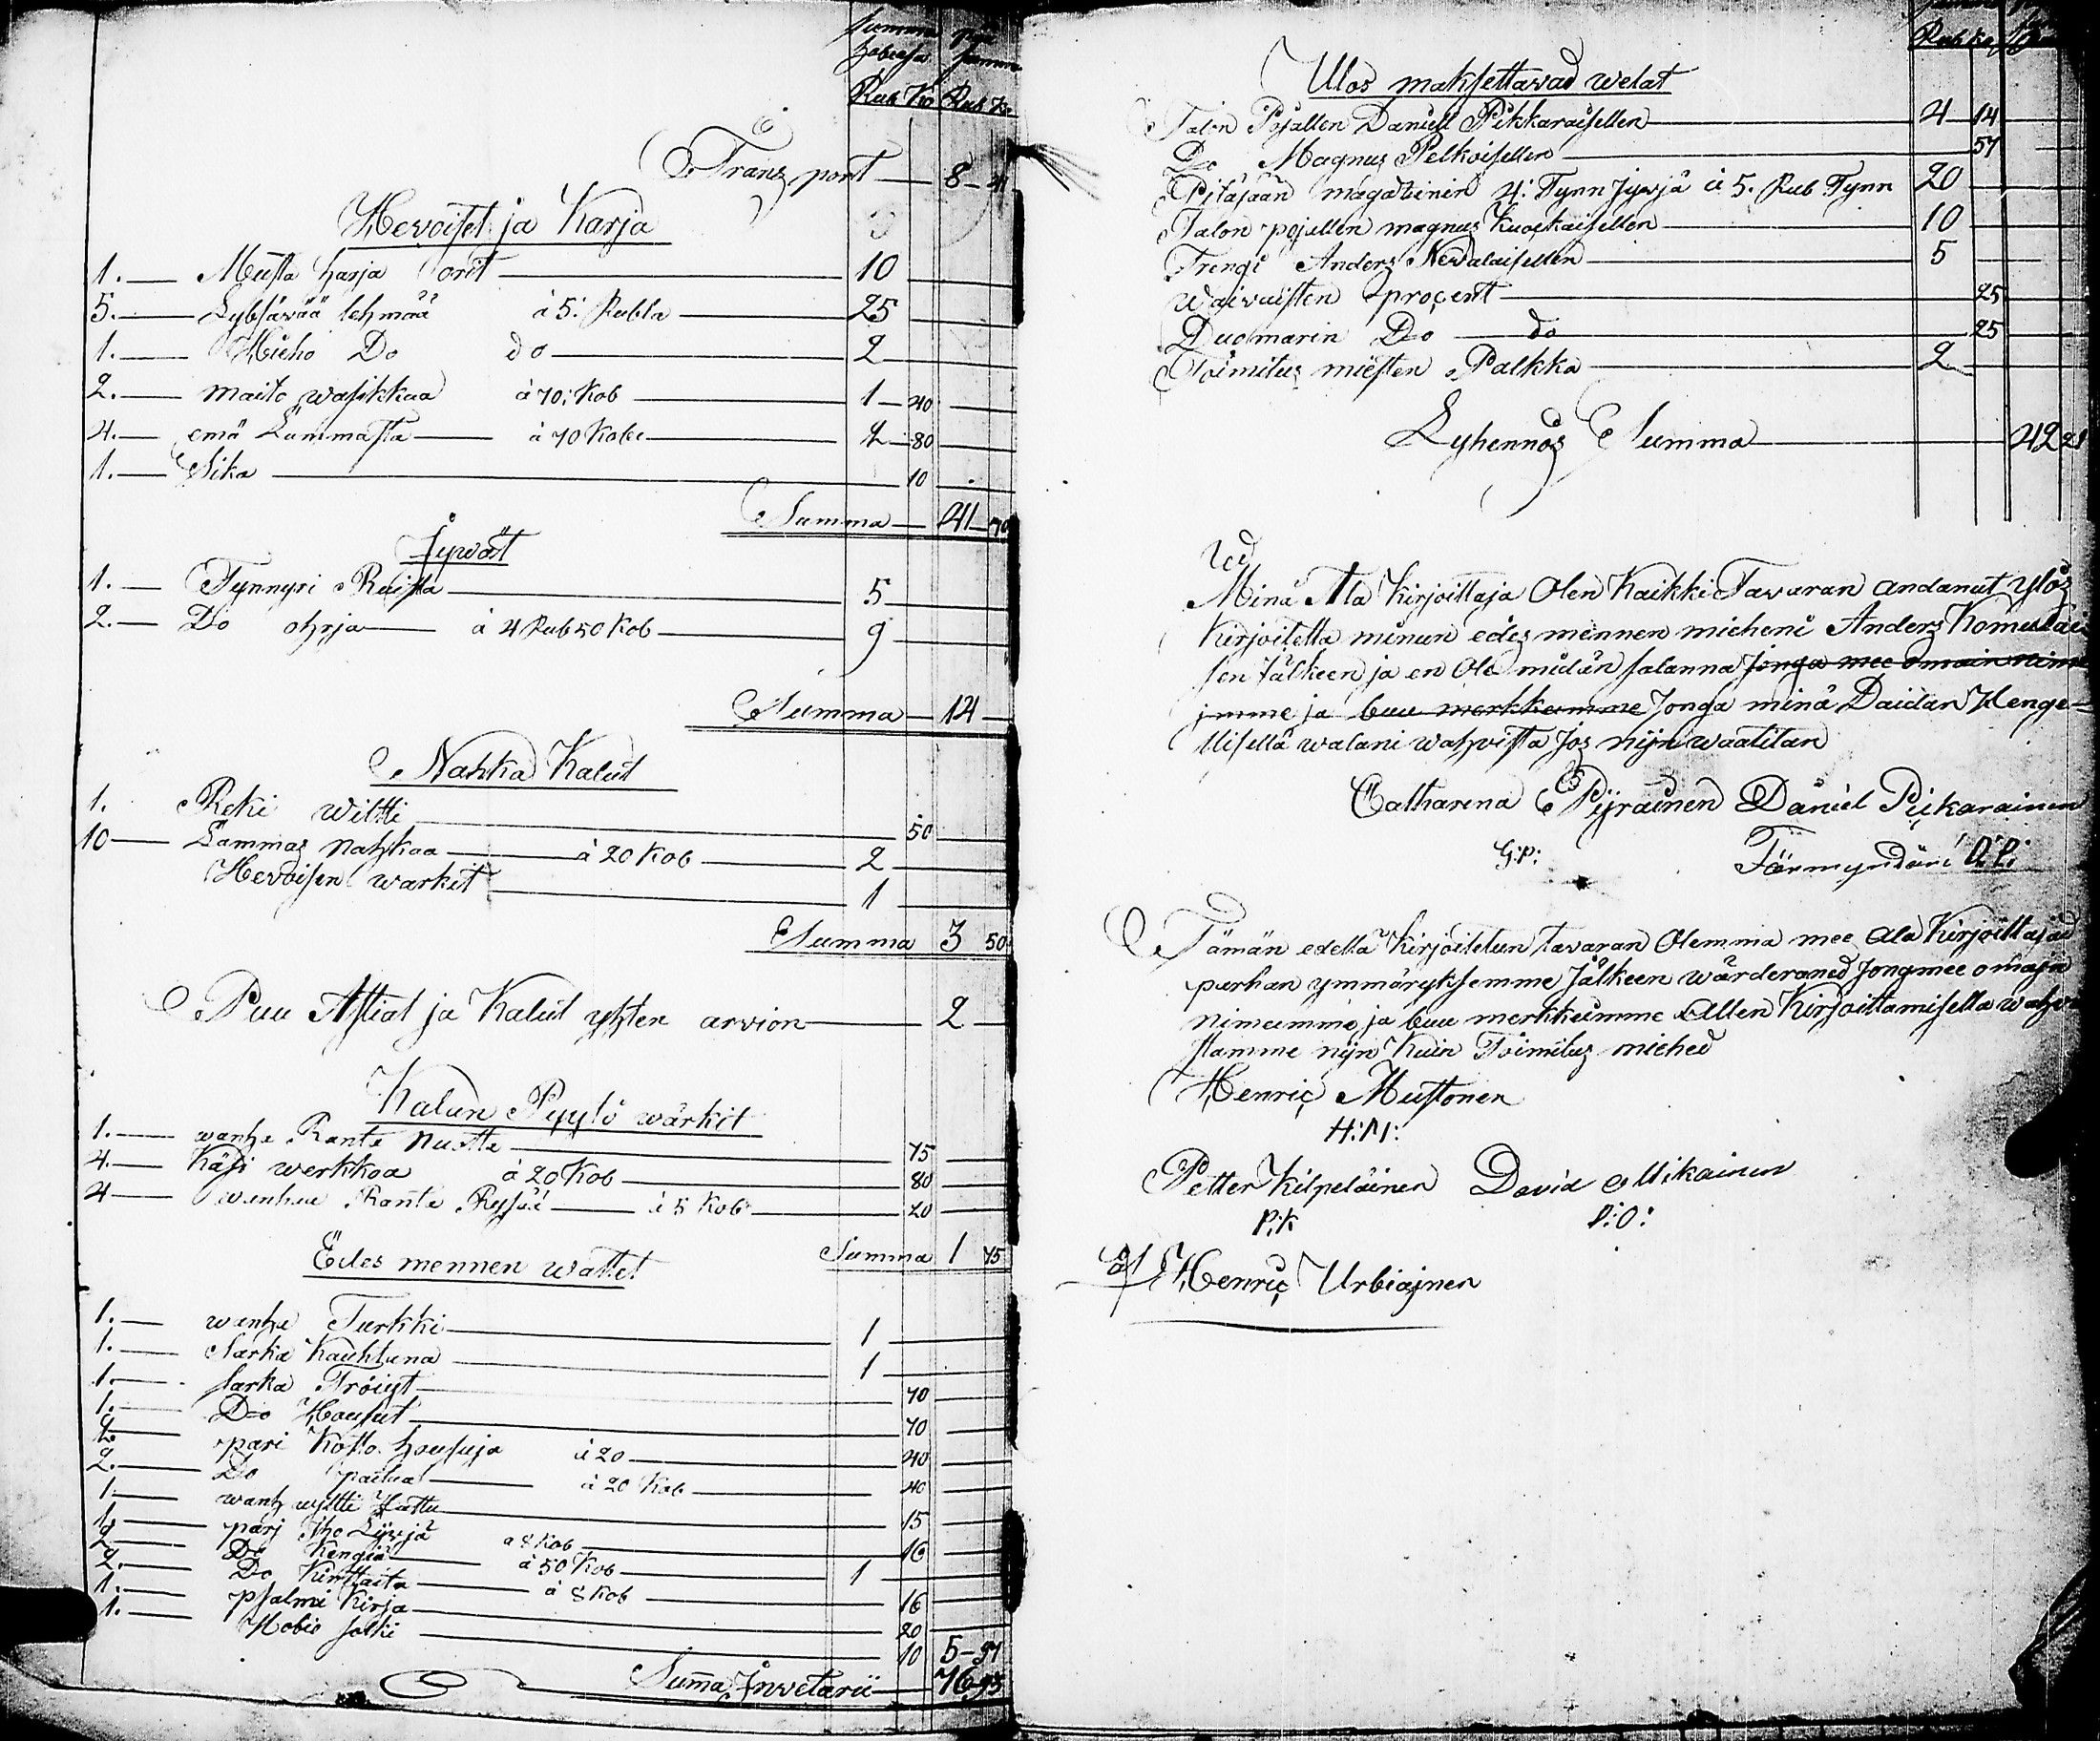 Summa
hobeasa
Rub Ko Rub Ko
Transport 8 41
Hevoiset ja Karja
1. Musta harja orit 10
5. Lybsävää lehmää à 5: Rubla 25
1. Hieho Do do 2
2. maito wasikkaa à 70: Kob 1 40
4. emä Lammasta à 70 Kobe 2 80
1. Sika 10
Summa 41 70
Jywät
1. Tynnyri Ruista 5
2. Do ohrja à 4 Rub 50 Kob 9
Summa 14
Nahka Kalut
1. Reki Wiltti 50
10 Lammas nahkaa à 20 Kob 2
Hevoisen warkit 1
Summa 3 50
Puu Astiat ja Kalut yhten arvion 2
Kalun Pyytö wärkit
1. wanha Ranta nuotta 75
4. Käsi werkkoa à 20 Kob 80
4 wanhaa Ranta Rysää à 5 Kob 20
Summa 1 75
Edes mennen wattet
1. wanha Turkki 1
1. Sarka Kauhtana 1
1. sarka Tröiyt 70
1. Do Housut 70
2. pari housuja à 20 40
2. Do paitaa à 20 Kob 40
1. wanh wiltti Hattu 15
2 parj à 8 Kob 16
2 Do Kengiä à 50 Kob 1
2. Do Kinttaita à 8 Kob 16
1. psalmi Kirja 20
1. Hobia solki 10 5 97
Summa Invetarii 76 93
Rub Ko
Ulos maksettavad welat
Talon Pojallen Daniell Pikkaraisellen 4 14
Do Magnus Pelkoisellen 57
Pitäjään magatzinin 4: Tynn Jywjä à 5. Rub Tynn 20
Talon pojallen magnus Kuoskaisellen 10
Trengi Anders Nevalaisellen 5
Waivaisten procent 25
Duomarin Do do 25
Toimitus miesten Palkka 2
Lyhennös Summa 42 21
Minä Ala Kirjoittaja Olen Kaikki Tavaran andanut ylös
Kirjoitetta minun edes mennen mieheni Anders Komulai
sen jälkeen ja en Ole mitän salanna Jonga mee omain nim
imme ja buu merkkumme Jonga minä Daidan Henge=
llisellä walani wahvista Jos nijn waatitan
Catharina Pijrainen Daniel Pickarainen
G:P: Förmyndäri D:P:
Tämän edellä Kirjoitetun tavaran Olemma mee Ala Kirjoittajad
parhan ymmäryksemme Jälkeen wärderaned Jong mee omain
nimeemme ja buu merkkeimme Allen Kirjoittamisella wahvi
stamme nijn Kuin Toimitus miehed
Henric Mustonen
H:M:
Petter Kilpeläinen David Mikainen
P:K D:O:
Henric Urbiajnen